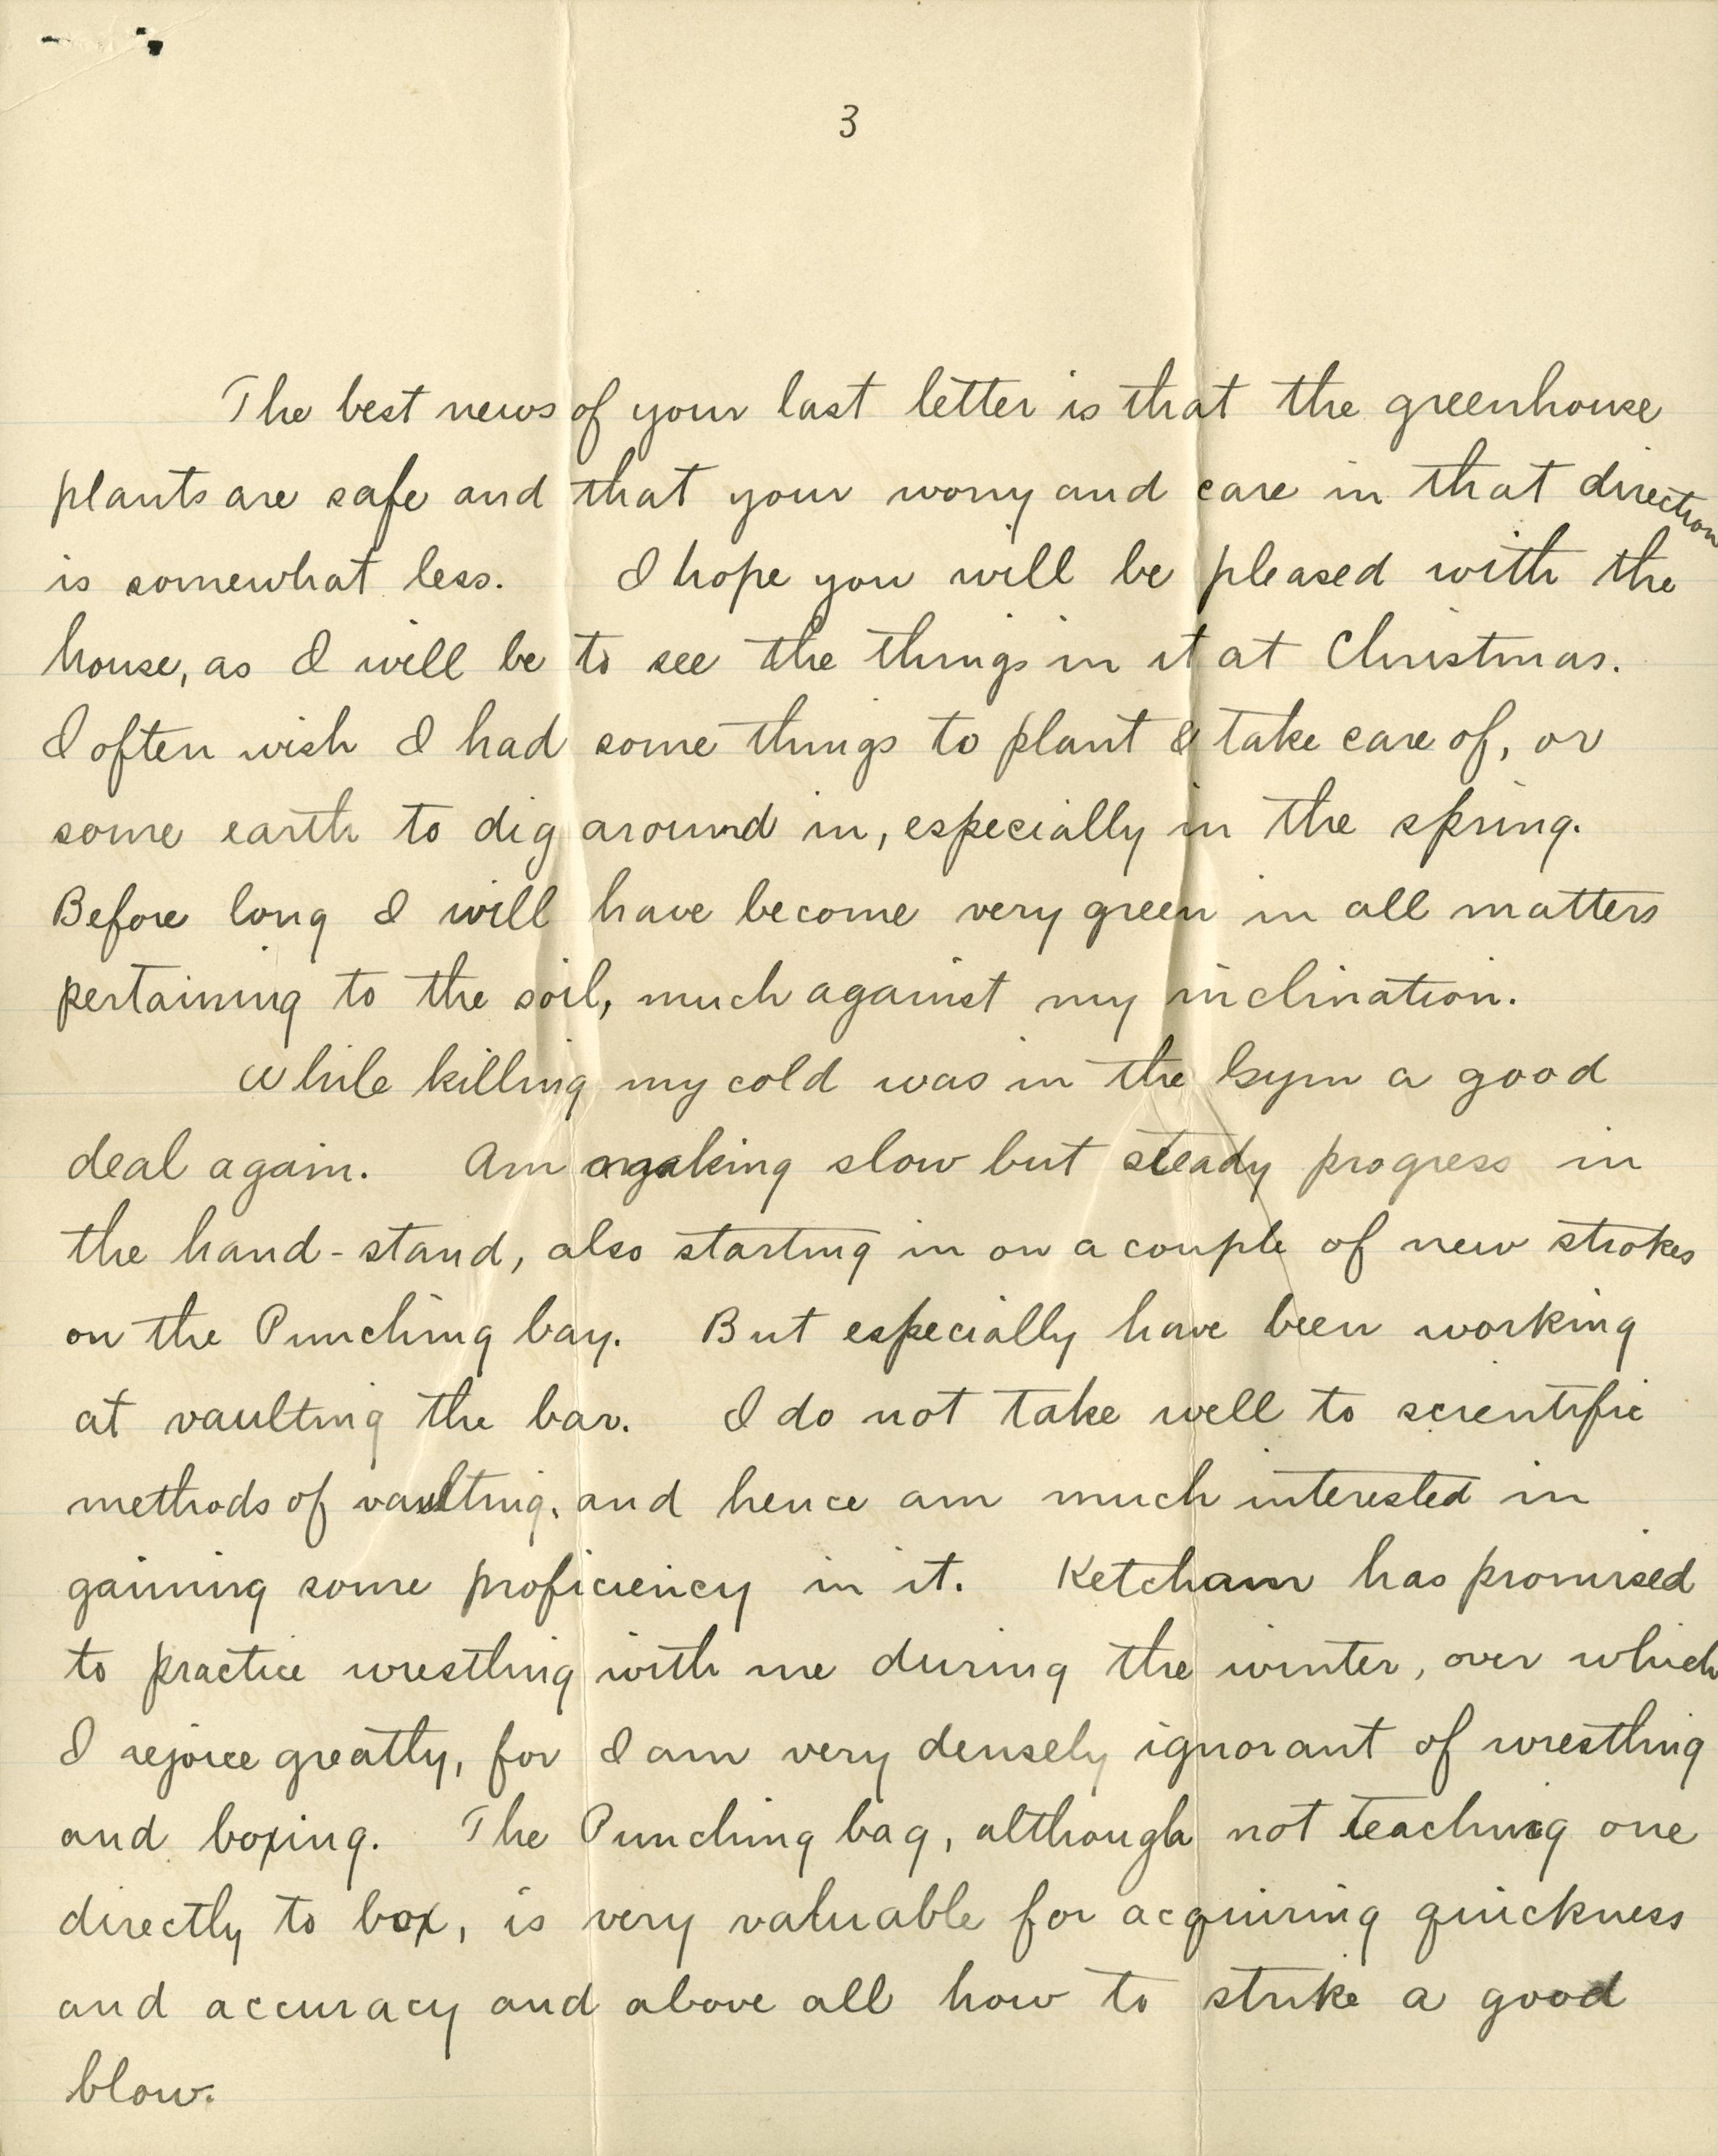 3
The best news of your last letter is that the greenhouse
plants are safe and that your worry and care in that direction
is somewhat less. I hope you will be pleased with the
house, as I will be to see the things in it at Christmas.
I often wish I had some things to plant & take care of, or
some earth to dig around in, especially in the spring.
Before long I will have become very green in all matters
pertaining to the soil, much against my inclination.
While killing my cold was in the Gym a good
deal again. Am making slow but steady progress in
the hand-stand, also starting in on a couple of new strokes
on the Punching bag. But especially have been working
at vaulting the bar. I do not take well to scientific
methods of vaulting, and hence am much interested in
gaining some proficiency in it. Ketcham has promised
to practice wrestling with me during the winter, over which
I rejoice greatly, for I am very densely ignorant of wrestling
and boxing. The Punching bag, although not teaching one
directly to box, is very valuable for acquiring quickness
and accuracy and above all how to strike a good
blow.